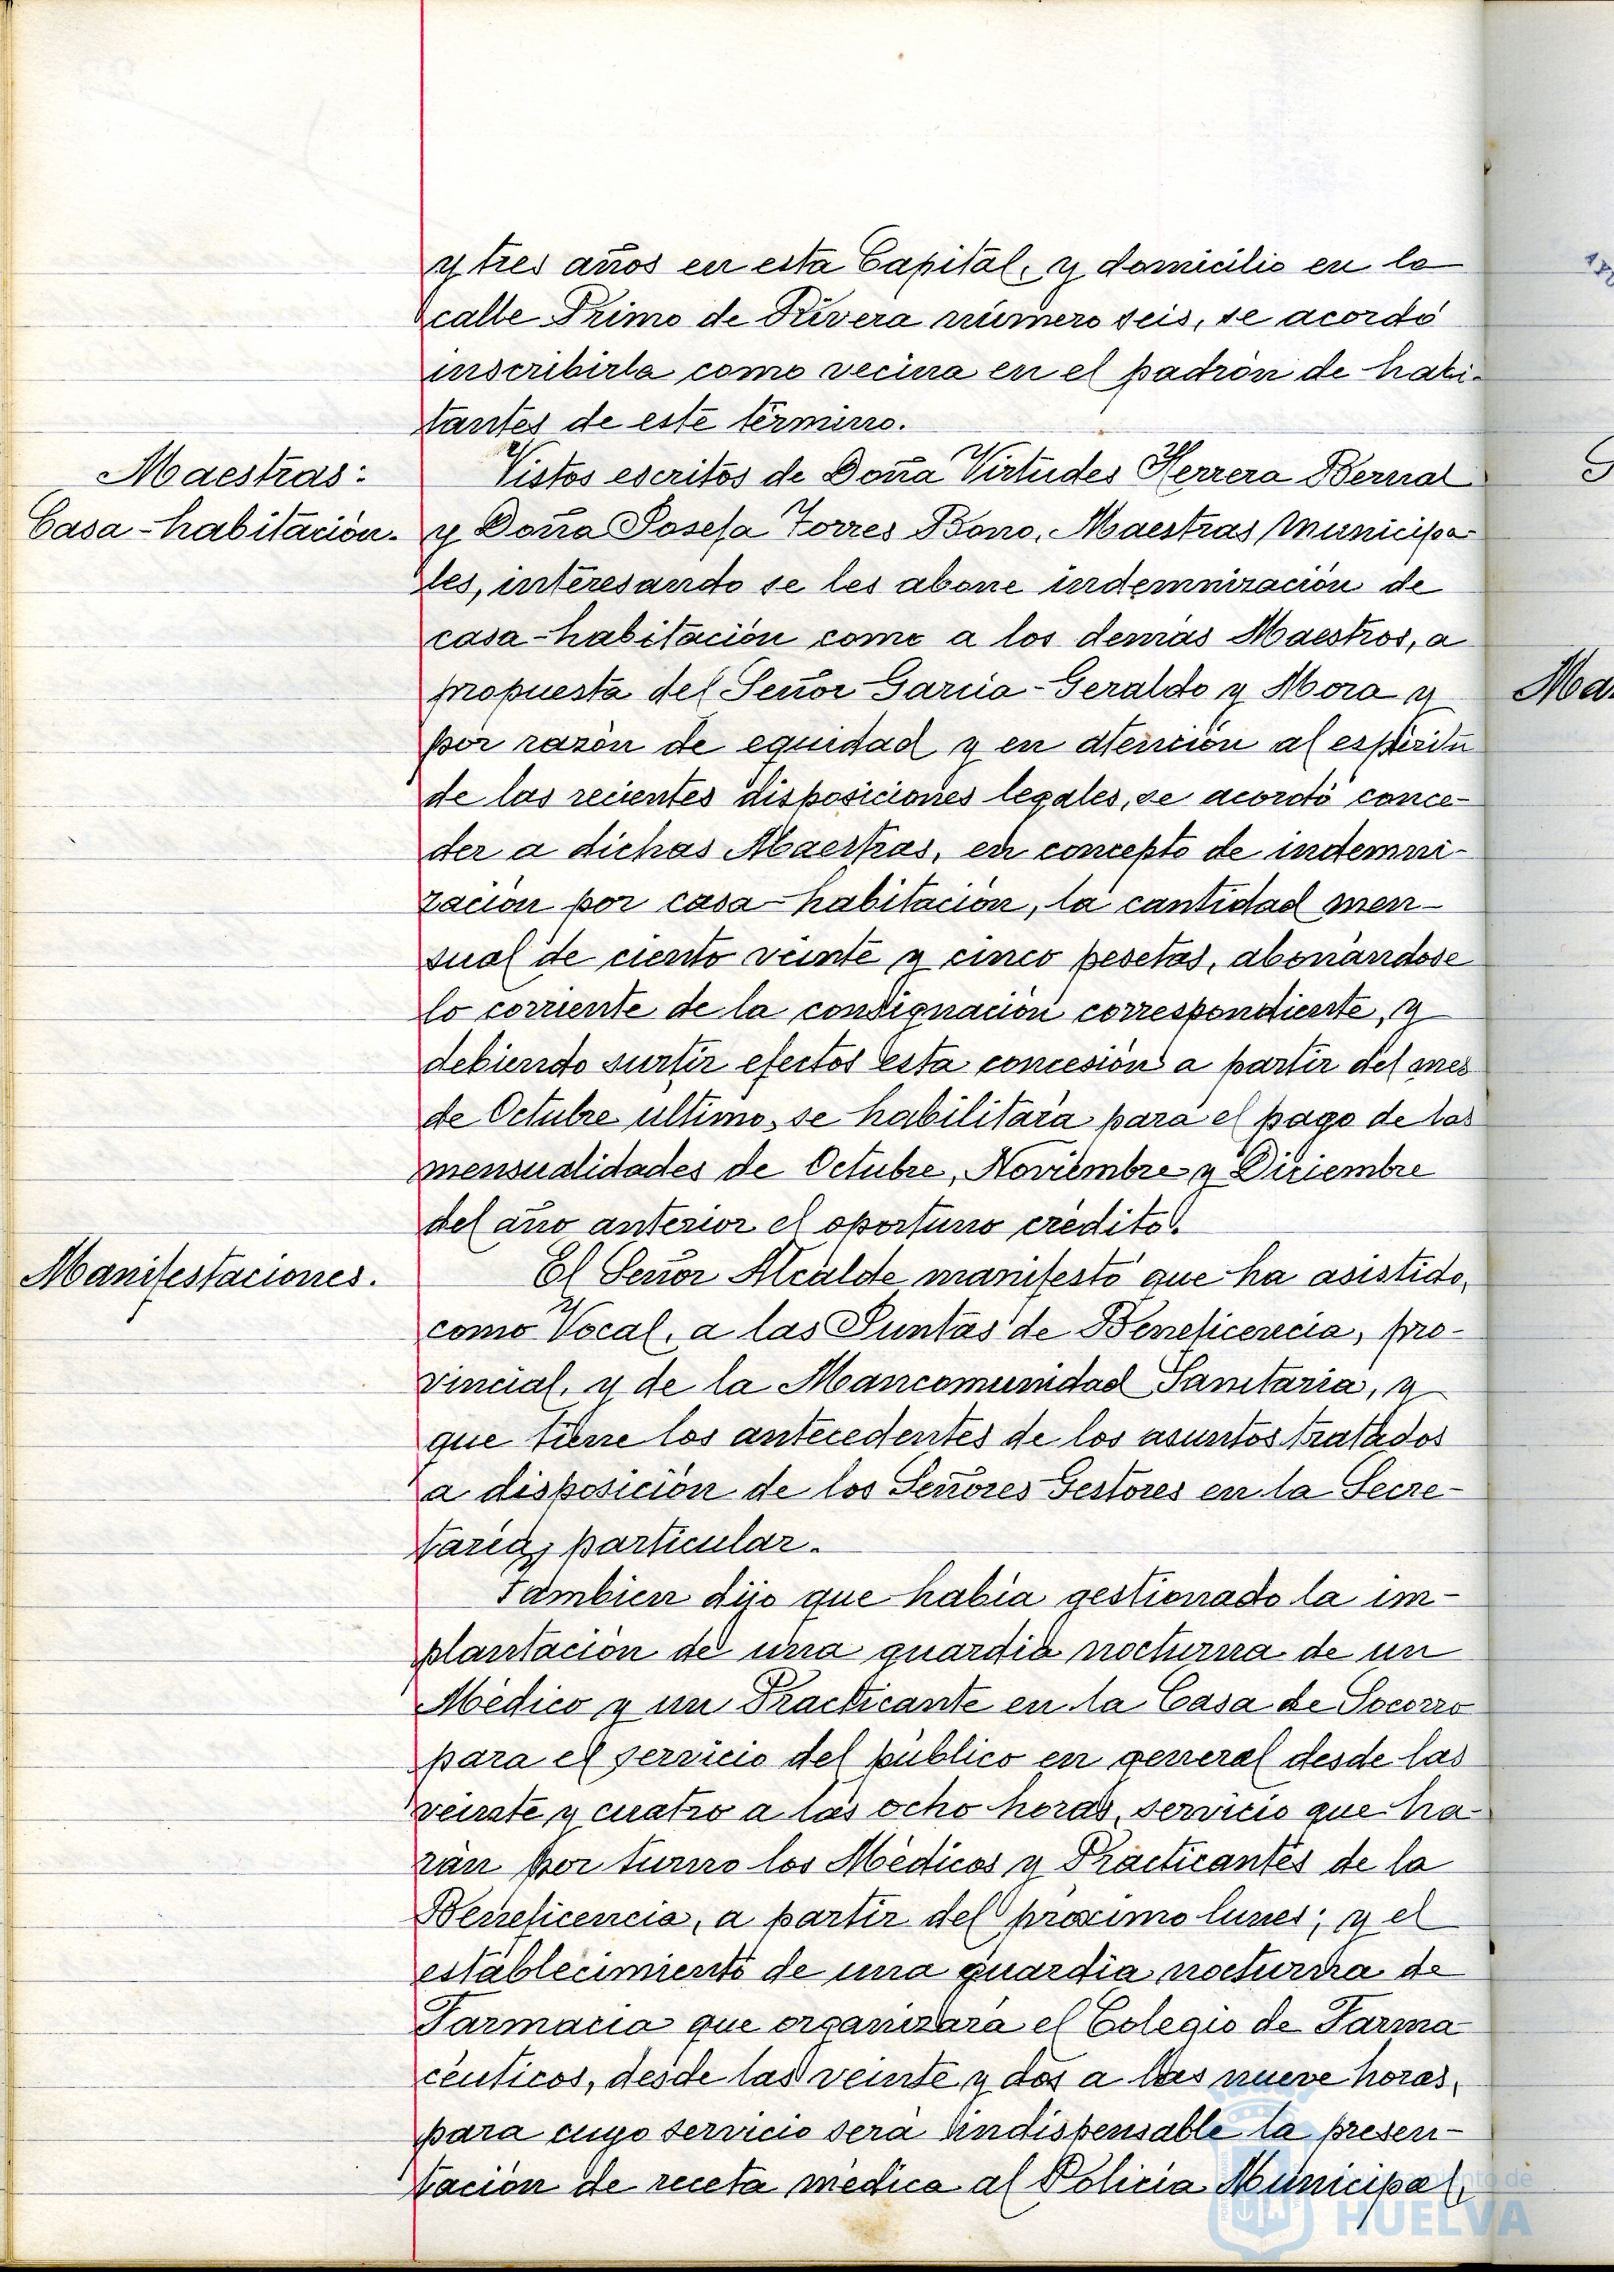 y tres años en esta Capital, y domicilio en la
calle Primo de Rivera número seis, se acordó
inscribirla como vecina en el padrón de habi-
tantes de este término.
Maestras:
Casa-habitación.
Vistos escritos de Doña Virtudes Herrera Bernal
y Doña Josefa Torres Bono, Maestras Municipa
les, interesando se les abone indemnización de
casa-habitación como a los demás Maestros, a
propuesta del Señor Garcia-Geraldo y Mora y
por razón de equidad y en atención al espíritu
de las recientes disposiciones legales, se acordó conce-
der a dichas Maestras, en concepto de indemni-
zación por casa-habitación, la cantidad men-
sual de ciento veinte y cinco pesetas, abonándose
lo corriente de la consignación correspondiente, y
debiendo surtir efectos esta concesión a partir del mes
de Octubre ultimo, se habilitará para el pago de las
mensualidades de Octubre, Noviembre y Diciembre
del año anterior el oportuno crédito.
Manifestaciones.
El Señor Alcalde manifestó que ha asistido,
como Vocal, a las Juntas de Beneficencia, pro-
vincial, y de la Mancomunidad Sanitaria, y
que tiene los antecedentes de los asuntos tratados
a disposición de los Señores Gestores en la Secre-
taria particular.
Tambien dijo que habia gestionado la im-
plantación de una guardia nocturna de un
Médico y un Practicante en la Casa de Socorro
para el servicio del público en general desde las
veinte y cuatro a las ocho horas, servicio que ha-
rán por turno los Médicos y Practicantes de la
Beneficencia, a partir del próximo lunes; y el
establecimiento de una guardia nocturna de
Farmacia que organizará el Colegio de Farma
céuticos, desde las veinte y dos a las nueve horas,
para cuyo servicio será indispensable la presen-
tación de receta médica al Policia Municipal,
Ma
Ayuntamiento de
HUELVA